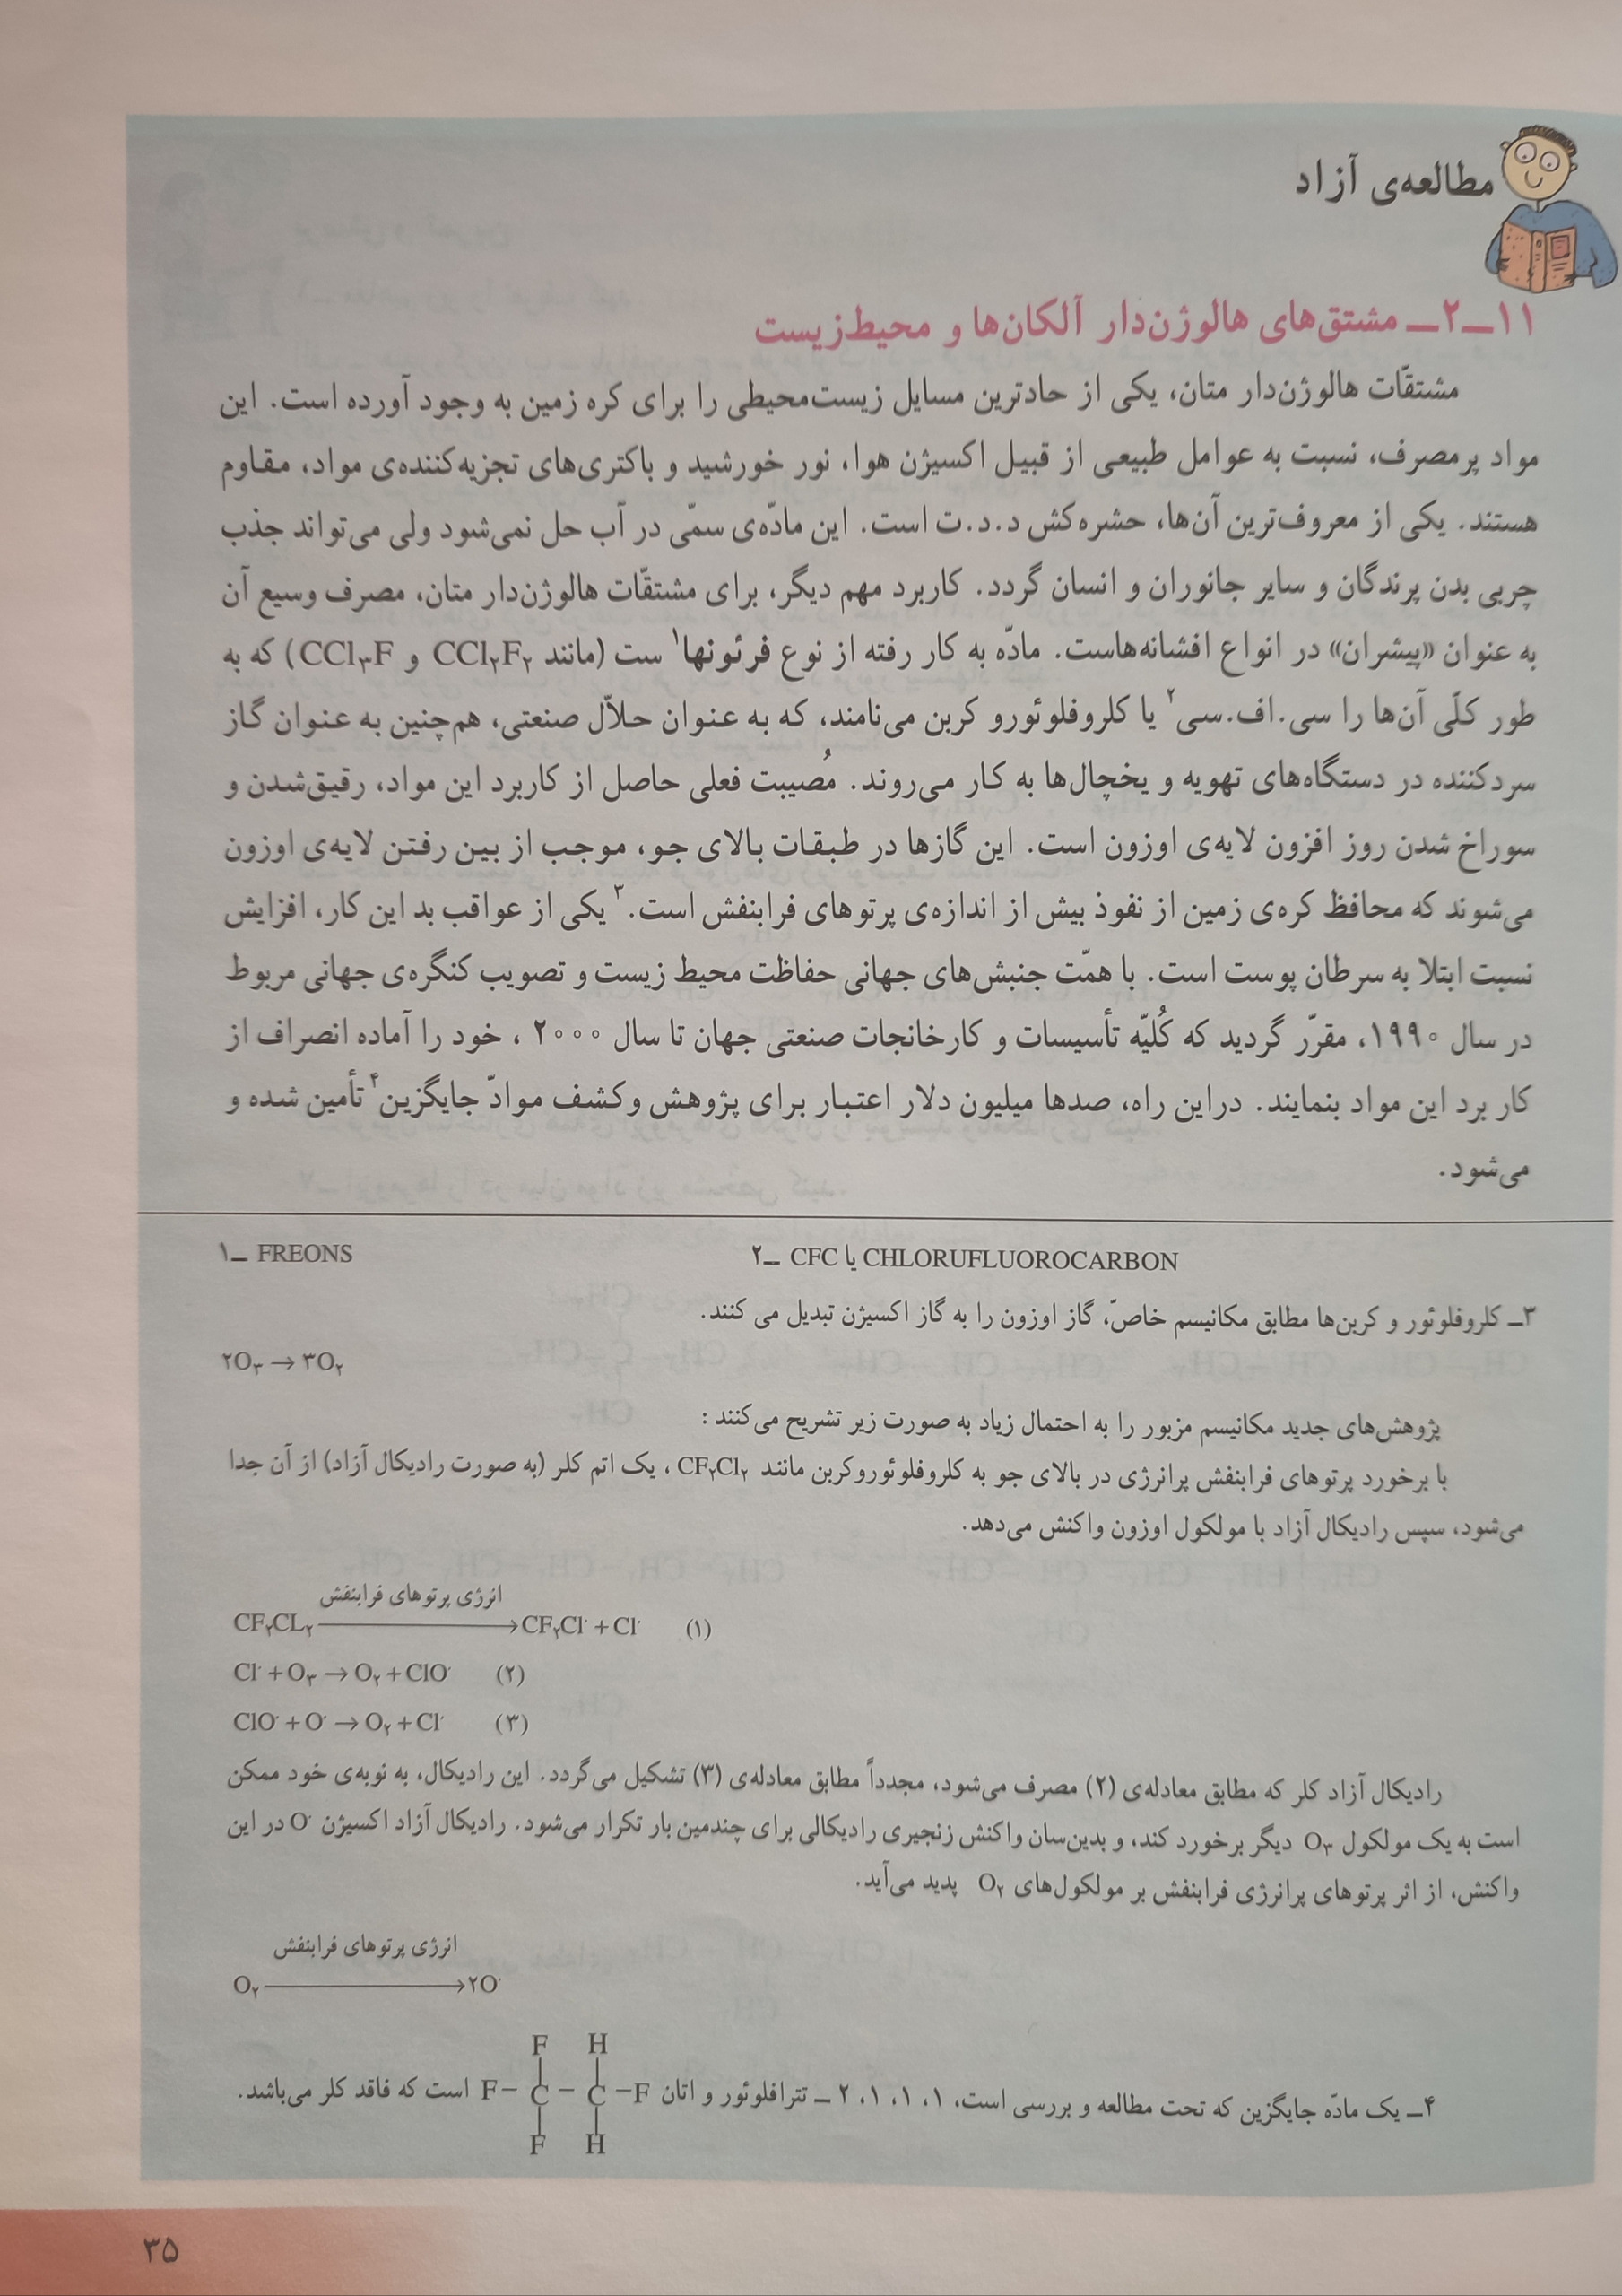 مطالعه‌ی آزاد
۱۱ــ۲ــ مشتق‌های هالوژن‌دار آلکان‌ها و محیط‌زیست
مشتقّات هالوژن‌دار متان، یکی از حادترین مسایل زیست‌محیطی را برای کره زمین به وجود آورده است. این
مواد پرمصرف، نسبت به عوامل طبیعی از قبیل اکسیژن هوا، نور خورشید و باکتری‌های تجزیه‌کننده‌ی مواد، مقاوم
هستند. یکی از معروف‌ترین آن‌ها، حشره‌کش د.د.ت است. این مادّه‌ی سمّی در آب حل نمی‌شود ولی می‌تواند جذب
چربی بدن پرندگان و سایر جانوران و انسان گردد. کاربرد مهم دیگر، برای مشتقّات هالوژن‌دار متان، مصرف وسیع آن
به عنوان «پیشران» در انواع افشانه‌هاست. مادّه به کار رفته از نوع فرئونها¹ ست (مانند CCl₂F₂ و CCl₃F) که به
طور کلّی آن‌ها را سی.اف.سی² یا کلروفلوئورو کربن می‌نامند، که به عنوان حلاّل صنعتی، هم‌چنین به عنوان گاز
سردکننده در دستگاه‌های تهویه و یخچال‌ها به کار می‌روند. مُصیبت فعلی حاصل از کاربرد این مواد، رقیق‌شدن و
سوراخ شدن روز افزون لایه‌ی اوزون است. این گازها در طبقات بالای جو، موجب از بین رفتن لایه‌ی اوزون
می‌شوند که محافظ کره‌ی زمین از نفوذ بیش از اندازه‌ی پرتوهای فرابنفش است.³ یکی از عواقب بد این کار، افزایش
نسبت ابتلا به سرطان پوست است. با همّت جنبش‌های جهانی حفاظت محیط زیست و تصویب کنگره‌ی جهانی مربوط
در سال ۱۹۹۰، مقرّر گردید که کُلیّه تأسیسات و کارخانجات صنعتی جهان تا سال ۲۰۰۰ ، خود را آماده انصراف از
کار برد این مواد بنمایند. دراین راه، صدها میلیون دلار اعتبار برای پژوهش وکشف موادّ جایگزین⁴ تأمین شده و
می‌شود.
۱ــ FREONS
۲ــ CFC یا CHLORUFLUOROCARBON
۳ــ کلروفلوئور و کربن‌ها مطابق مکانیسم خاصّ، گاز اوزون را به گاز اکسیژن تبدیل می کنند.
۲O₃ → ۳O₂
پژوهش‌های جدید مکانیسم مزبور را به احتمال زیاد به صورت زیر تشریح می‌کنند :
با برخورد پرتوهای فرابنفش پرانرژی در بالای جو به کلروفلوئوروکربن مانند CF₂Cl₂ ، یک اتم کلر (به صورت رادیکال آزاد) از آن جدا
می‌شود، سپس رادیکال آزاد با مولکول اوزون واکنش می‌دهد.
انرژی پرتوهای فرابنفش
CF₂CL₂ → CF₂Cl˙ + Cl˙ (۱)
Cl˙ + O₃ → O₂ + ClO˙ (۲)
ClO˙ + O˙ → O₂ + Cl˙ (۳)
رادیکال آزاد کلر که مطابق معادله‌ی (۲) مصرف می‌شود، مجدداً مطابق معادله‌ی (۳) تشکیل می‌گردد. این رادیکال، به نوبه‌ی خود ممکن
است به یک مولکول O₃ دیگر برخورد کند، و بدین‌سان واکنش زنجیری رادیکالی برای چندمین بار تکرار می‌شود. رادیکال آزاد اکسیژن O˙ در این
واکنش، از اثر پرتوهای پرانرژی فرابنفش بر مولکول‌های O₂ پدید می‌آید.
انرژی پرتوهای فرابنفش
O₂ → ۲O˙
F H
۴ــ یک مادّه جایگزین که تحت مطالعه و بررسی است، ۱، ۱، ۱، ۲ ــ تترافلوئور و اتان F–C–C–F است که فاقد کلر می‌باشد.
F H
۳۵